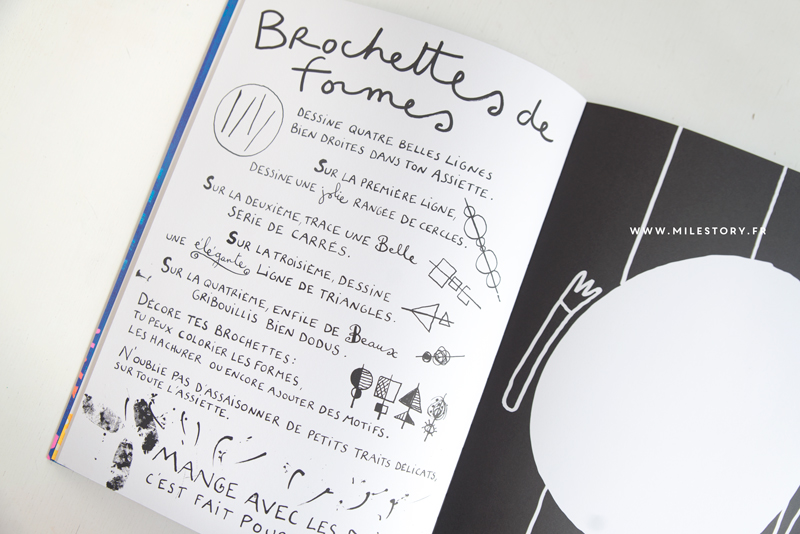 Brochettes de
formes
DESSINE QUATRE BELLES LIGNES
BIEN DROITES DANS TON ASSIETTE.
SUR LA PREMIÈRE LIGNE,
DESSINE UNE jolie RANGÉE DE CERCLES.
SUR LA DEUXIÈME, TRACE UNE Belle
SERIE DE CARRÉS.
SUR LA TROISIÈME, DESSINE
UNE élégante LIGNE DE TRIANGLES.
SUR LA QUATRIÈME, ENFILE DE Beaux
GRIBOUILLIS BIEN DODUS.
DÉCORE TES BROCHETTES:
TU PEUX COLORIER LES FORMES,
LES HACHURER OU ENCORE AJOUTER DES MOTIFS.
N'OUBLIE PAS D'ASSAISONNER DE PETITS TRAITS DÉLICATS,
SUR TOUTE L'ASSIETTE.
MANGE AVEC LES
C'EST FAIT POUR
WWW.MILESTORY.FR